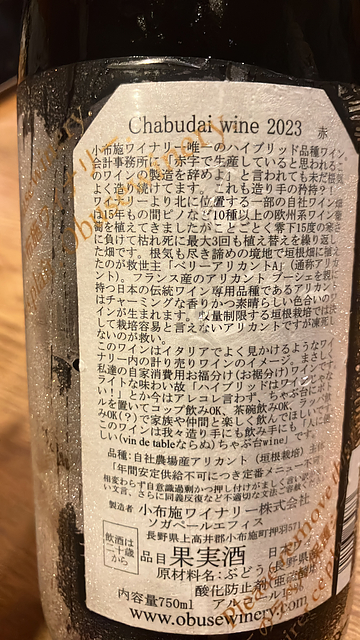 Chabudai wine 2023 赤
小布施ワイナリー唯一のハイブリッド品種ワイン
会計事務所に「赤字で生産していると思われる
のワインの製造を辞めよ」と言われても未だ根気
よく造り続けてます。これも造り手の矜持?!
ワイナリーより北に位置する一部の自社ワイン畑
は15年もの間ピノなど10種以上の欧州系ワイン葡
萄を植えてきましたがことごとく零下15度の寒さ
に負けて枯れ死に最大3回も植え替えを繰り返し
た畑です。根気も尽き諦めの境地で垣根畑に植え
たのが救世主「ベリーアリカントA」(通称アリカ
ント)。フランス産のアリカント ブーシェを親に
持つ日本の伝統ワイン専用品種であるアリカント
はチャーミングな香りかつ素晴らしい色合いのワ
インが生まれます。収量制限する垣根栽培では決
して栽培容易と言えないアリカントですが凍死し
ないのが救い。
このワインはイタリアでよく見かけるようなワイ
ナリー内の計り売りワインのイメージ。まさしく
私達の自家消費用お福分け(お裾分け)ワイン。
ライトな味わい故「ハイブリッドはワインじゃな
い!」とか今はアレコレ言わず、ちゃぶ台にボト
ルを置いてコップ飲みOK、茶碗飲みOK、ラッパ飲
みOK(?)で家族や仲間と楽しく飲んでほしいで
このワインは我々造り手にも飲み手にも「人に
しい(vin de tableならぬ)ちゃぶ台wine」です。
品種:自社農場産アリカント(垣根栽培)主体
「年間安定供給不可につき定番メニュー不
相変わらず自意識過剰かつ押し付けがましく言い訳
い文言、さらに同義反復など不適切な文法ご容赦
製造者 小布施ワイナリー株式会社
ソガペールエフィス
長野県上高井郡小布施町押羽57
飲酒は
二十歳
から
品目 果実酒 日
原材料名:ぶどう(長野県
酸化防止剤(亜硫酸
内容量750ml アルコール
www.obusewinery.com